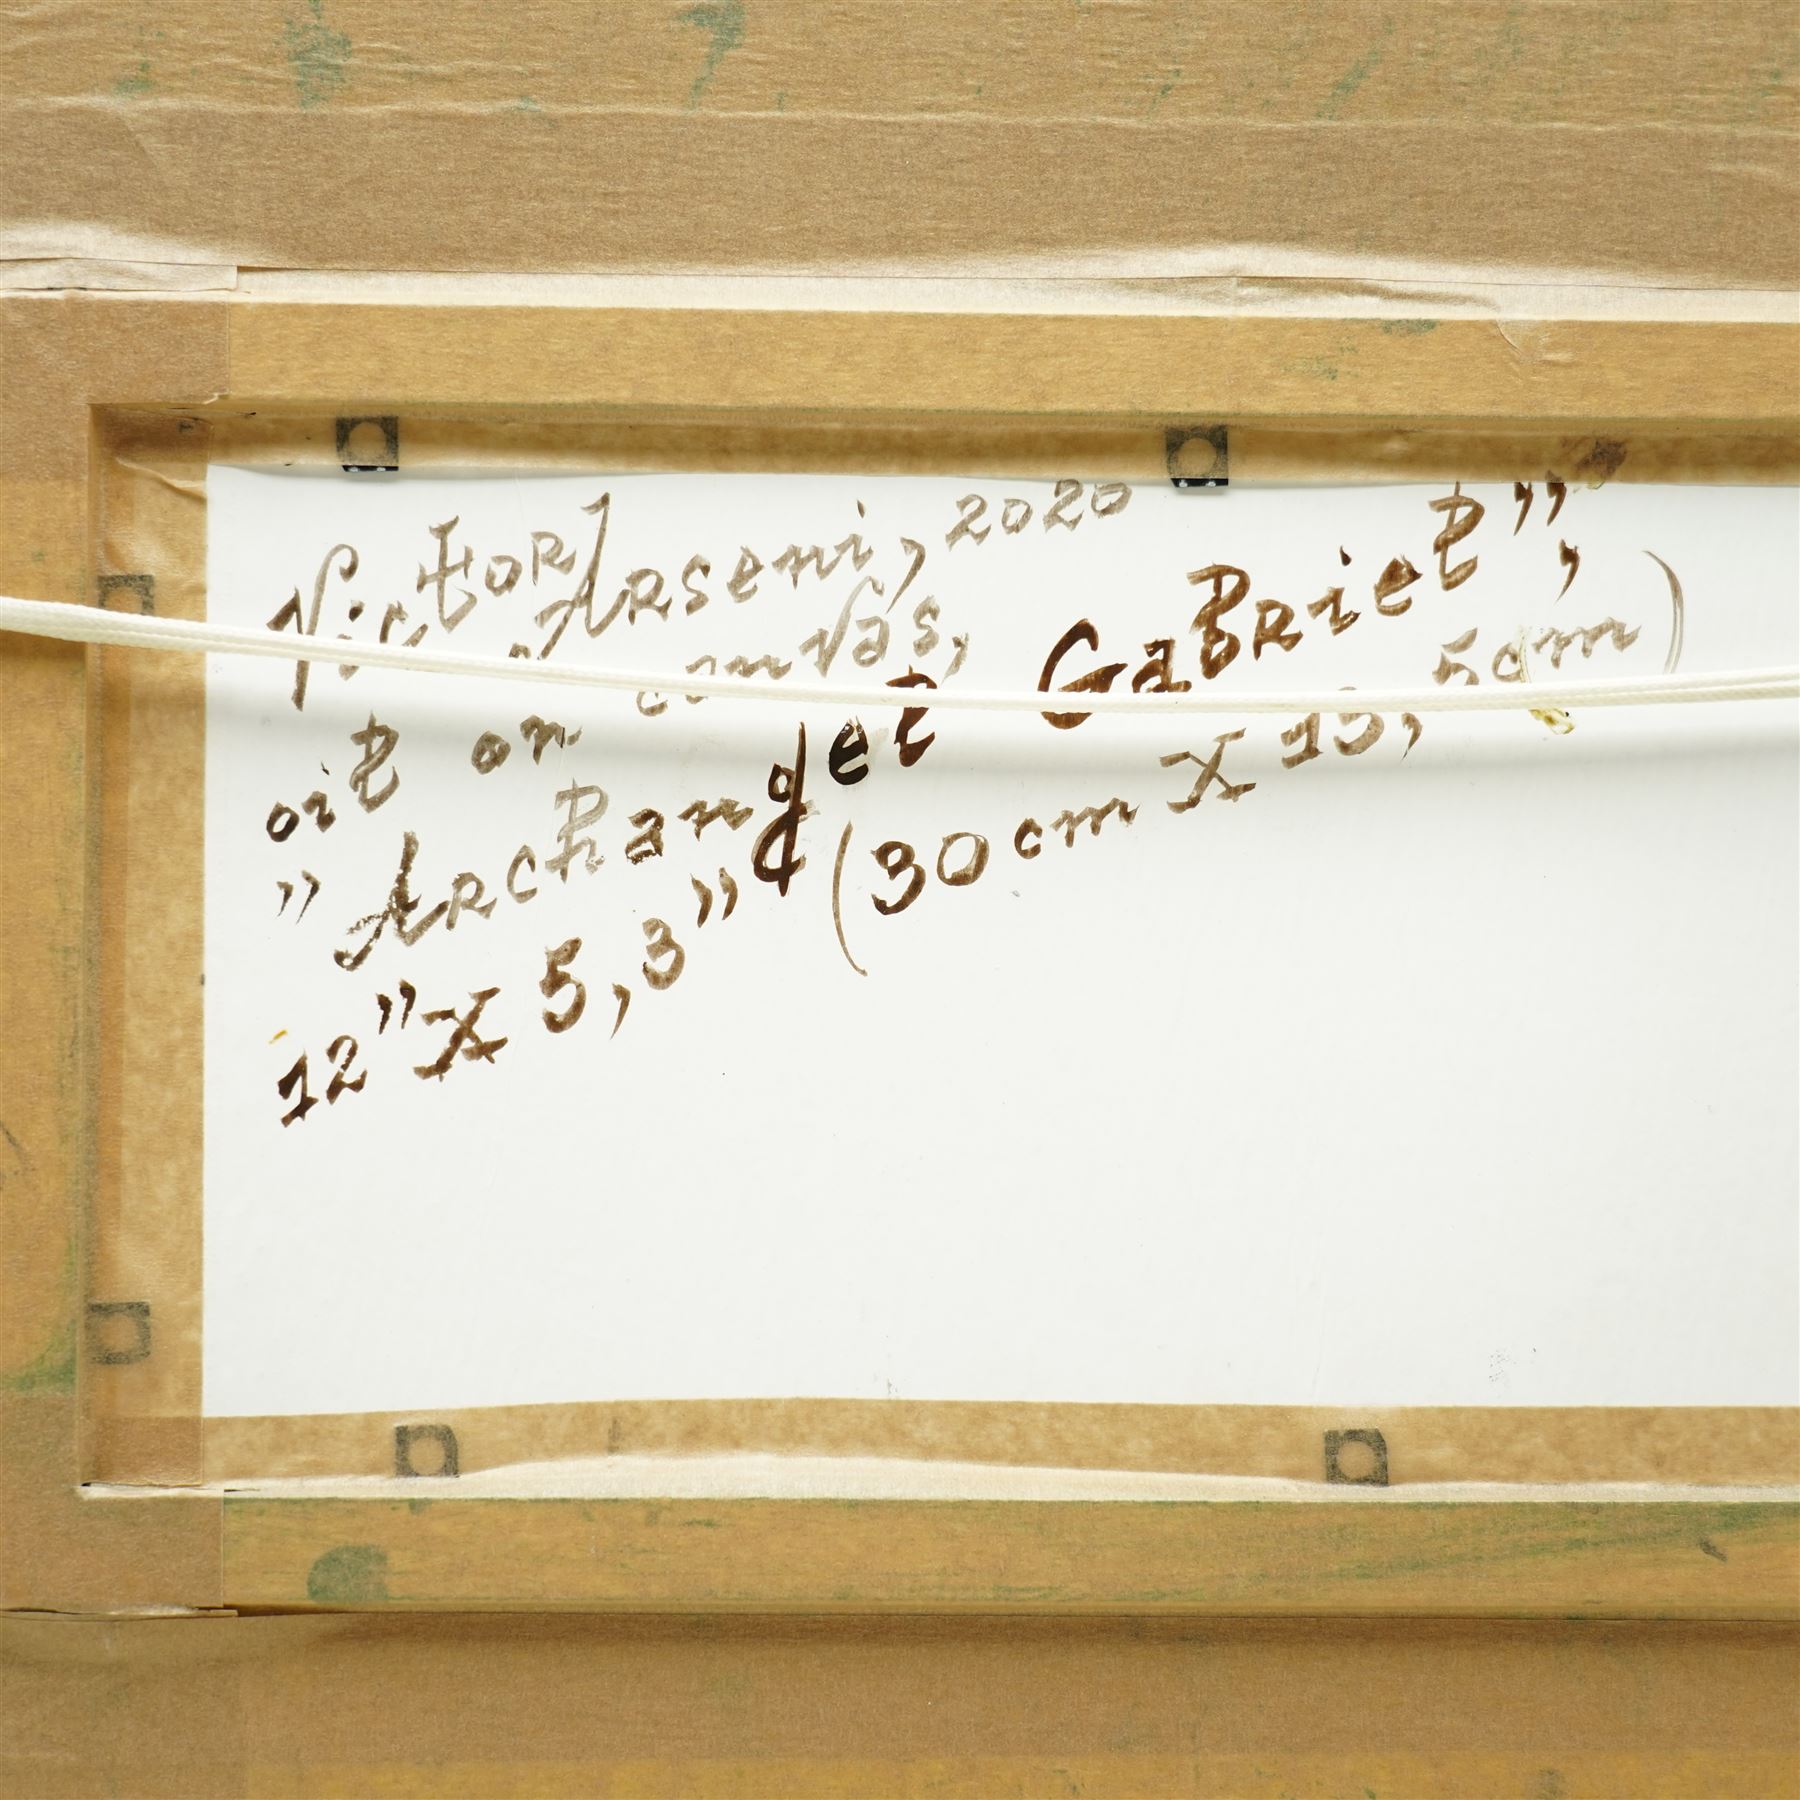 Victor Arseni, 2020
oil on canvas,
"Archangel Gabriel",
12" X 5,3" (30 cm X 13,5cm)